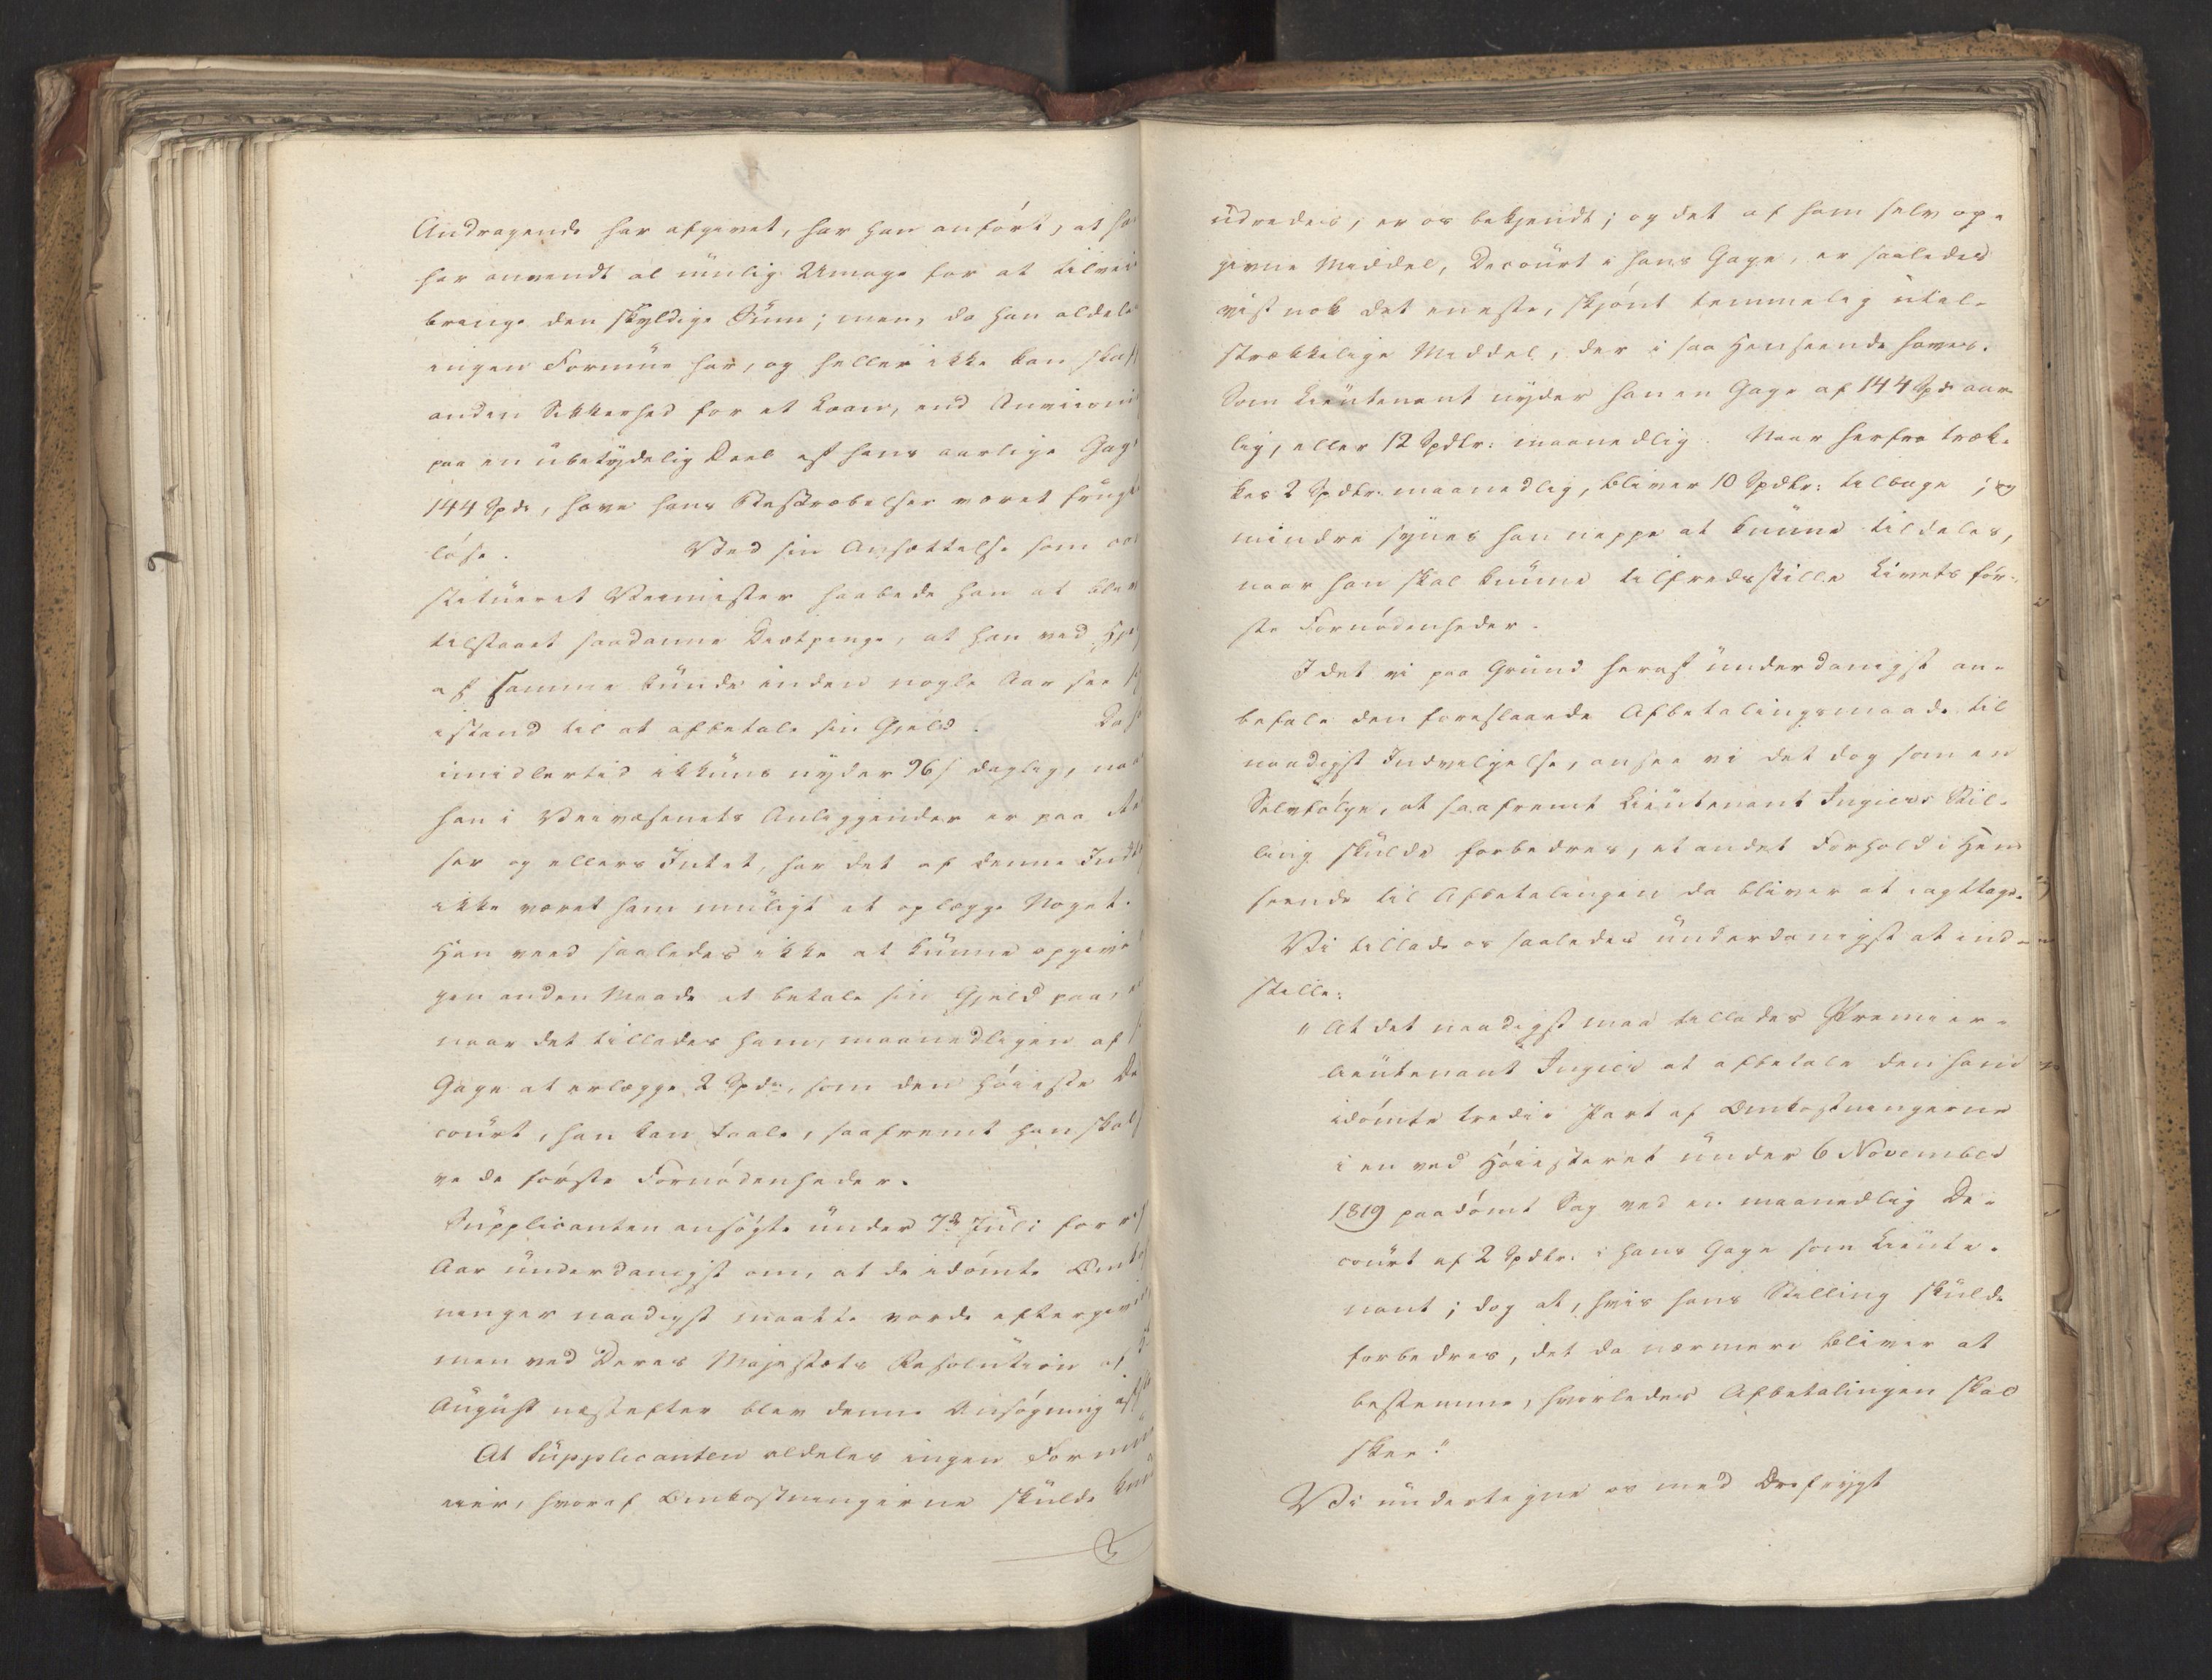 Andragende har afgivet, har han anført, at ha
har anvendt al mulig Umage for at tilvei
bringe den skyldige Sum; men, da han aldele
ingen Formue har, og heller ikke kan skaf
anden Sikkerhed for et Laan, end Anviisni
paa en ubetydelig Deel af hans aarlige Gag
144 Spd, have hans Bestræbelser været frugt
løse. Ved sin Ansættelse som
stitueret Veimester haabede han at blev
tilstaaet saadanne Diætpenge, at han ved Hje
af samme kunde inden nogle Aar see
istand til at afbetale sin Gjæld. Da
imidlertid ikkuns nyder 96 s daglig, naa
han i Veivæsenets Anliggender er paa Re
ser og ellers Intet, har det af denne Indt
ikke været ham muligt at oplægge Noget.
Han veed saaledes ikke at kunne opgive
gen anden Maade at betale sin Gjeld paa,
naar det tillades ham, maanedligen af
Gage at erlægge 2 Spdr, som den høieste De
court, han kan taale, saafremt han skal
ve de første Fornødenheder.
Supplicanten ansøgte under 7de Juli forri
Aar underdanigst om, at de idømte Omko
ninger naadigst maatte vorde eftergivn
men ved Deres Majestæts Resolution af
August næstefter blev denne Ansøgning
At Supplicanten aldeles ingen Formu
eier, hvoraf Omkostningerne skulde kun
udredes, er os bekjendt; og det af ham selv op-
givne Middel, Decourt i hans Gage, er saaledes
vist nok det eneste, skjønt temmelig util-
strækkelige Middel, der i saa Henseende haves.
Som Lieutenant nyder han en Gage af 144 Spd aar-
lig, eller 12 Spdlr: maanedlig. Naar herfra træk-
kes 2 Spdlr: maanedlig, bliver 10 Spdlr: tilbage; og
mindre synes han neppe at kunne tildeles,
naar han skal kunne tilfredsstille Livets før-
ste Fornødenheder.
Idet vi paa Grund heraf underdanigst an-
befale den foreslaaede Afbetalingsmaade til
naadigst Indvilgelse, ansee vi det dog som en
Selvfølge, at saafremt Lieutenant Ingiers Stil-
ling skulde forbedres, et andet Forhold i Hen-
seende til Afbetalingen da bliver at iagttage.
Vi tillade os saaledes underdanigst at ind-
stille:
"At det naadigst maa tillades Premier-
lieutenant Ingier at afbetale den ham
idømte tredie Part af Omkostningerne
i en ved Høiesteret under 6 November
1819 paadømt Sag ved en maanedlig De-
court af 2 Spdlr: i hans Gage som Lieute-
nant; dog at, hvis hans Stilling skulde
forbedres, det da nærmere bliver at
bestemme, hvorledes Afbetalingen skal
skee."
Vi undertegne os med Ærefrygt